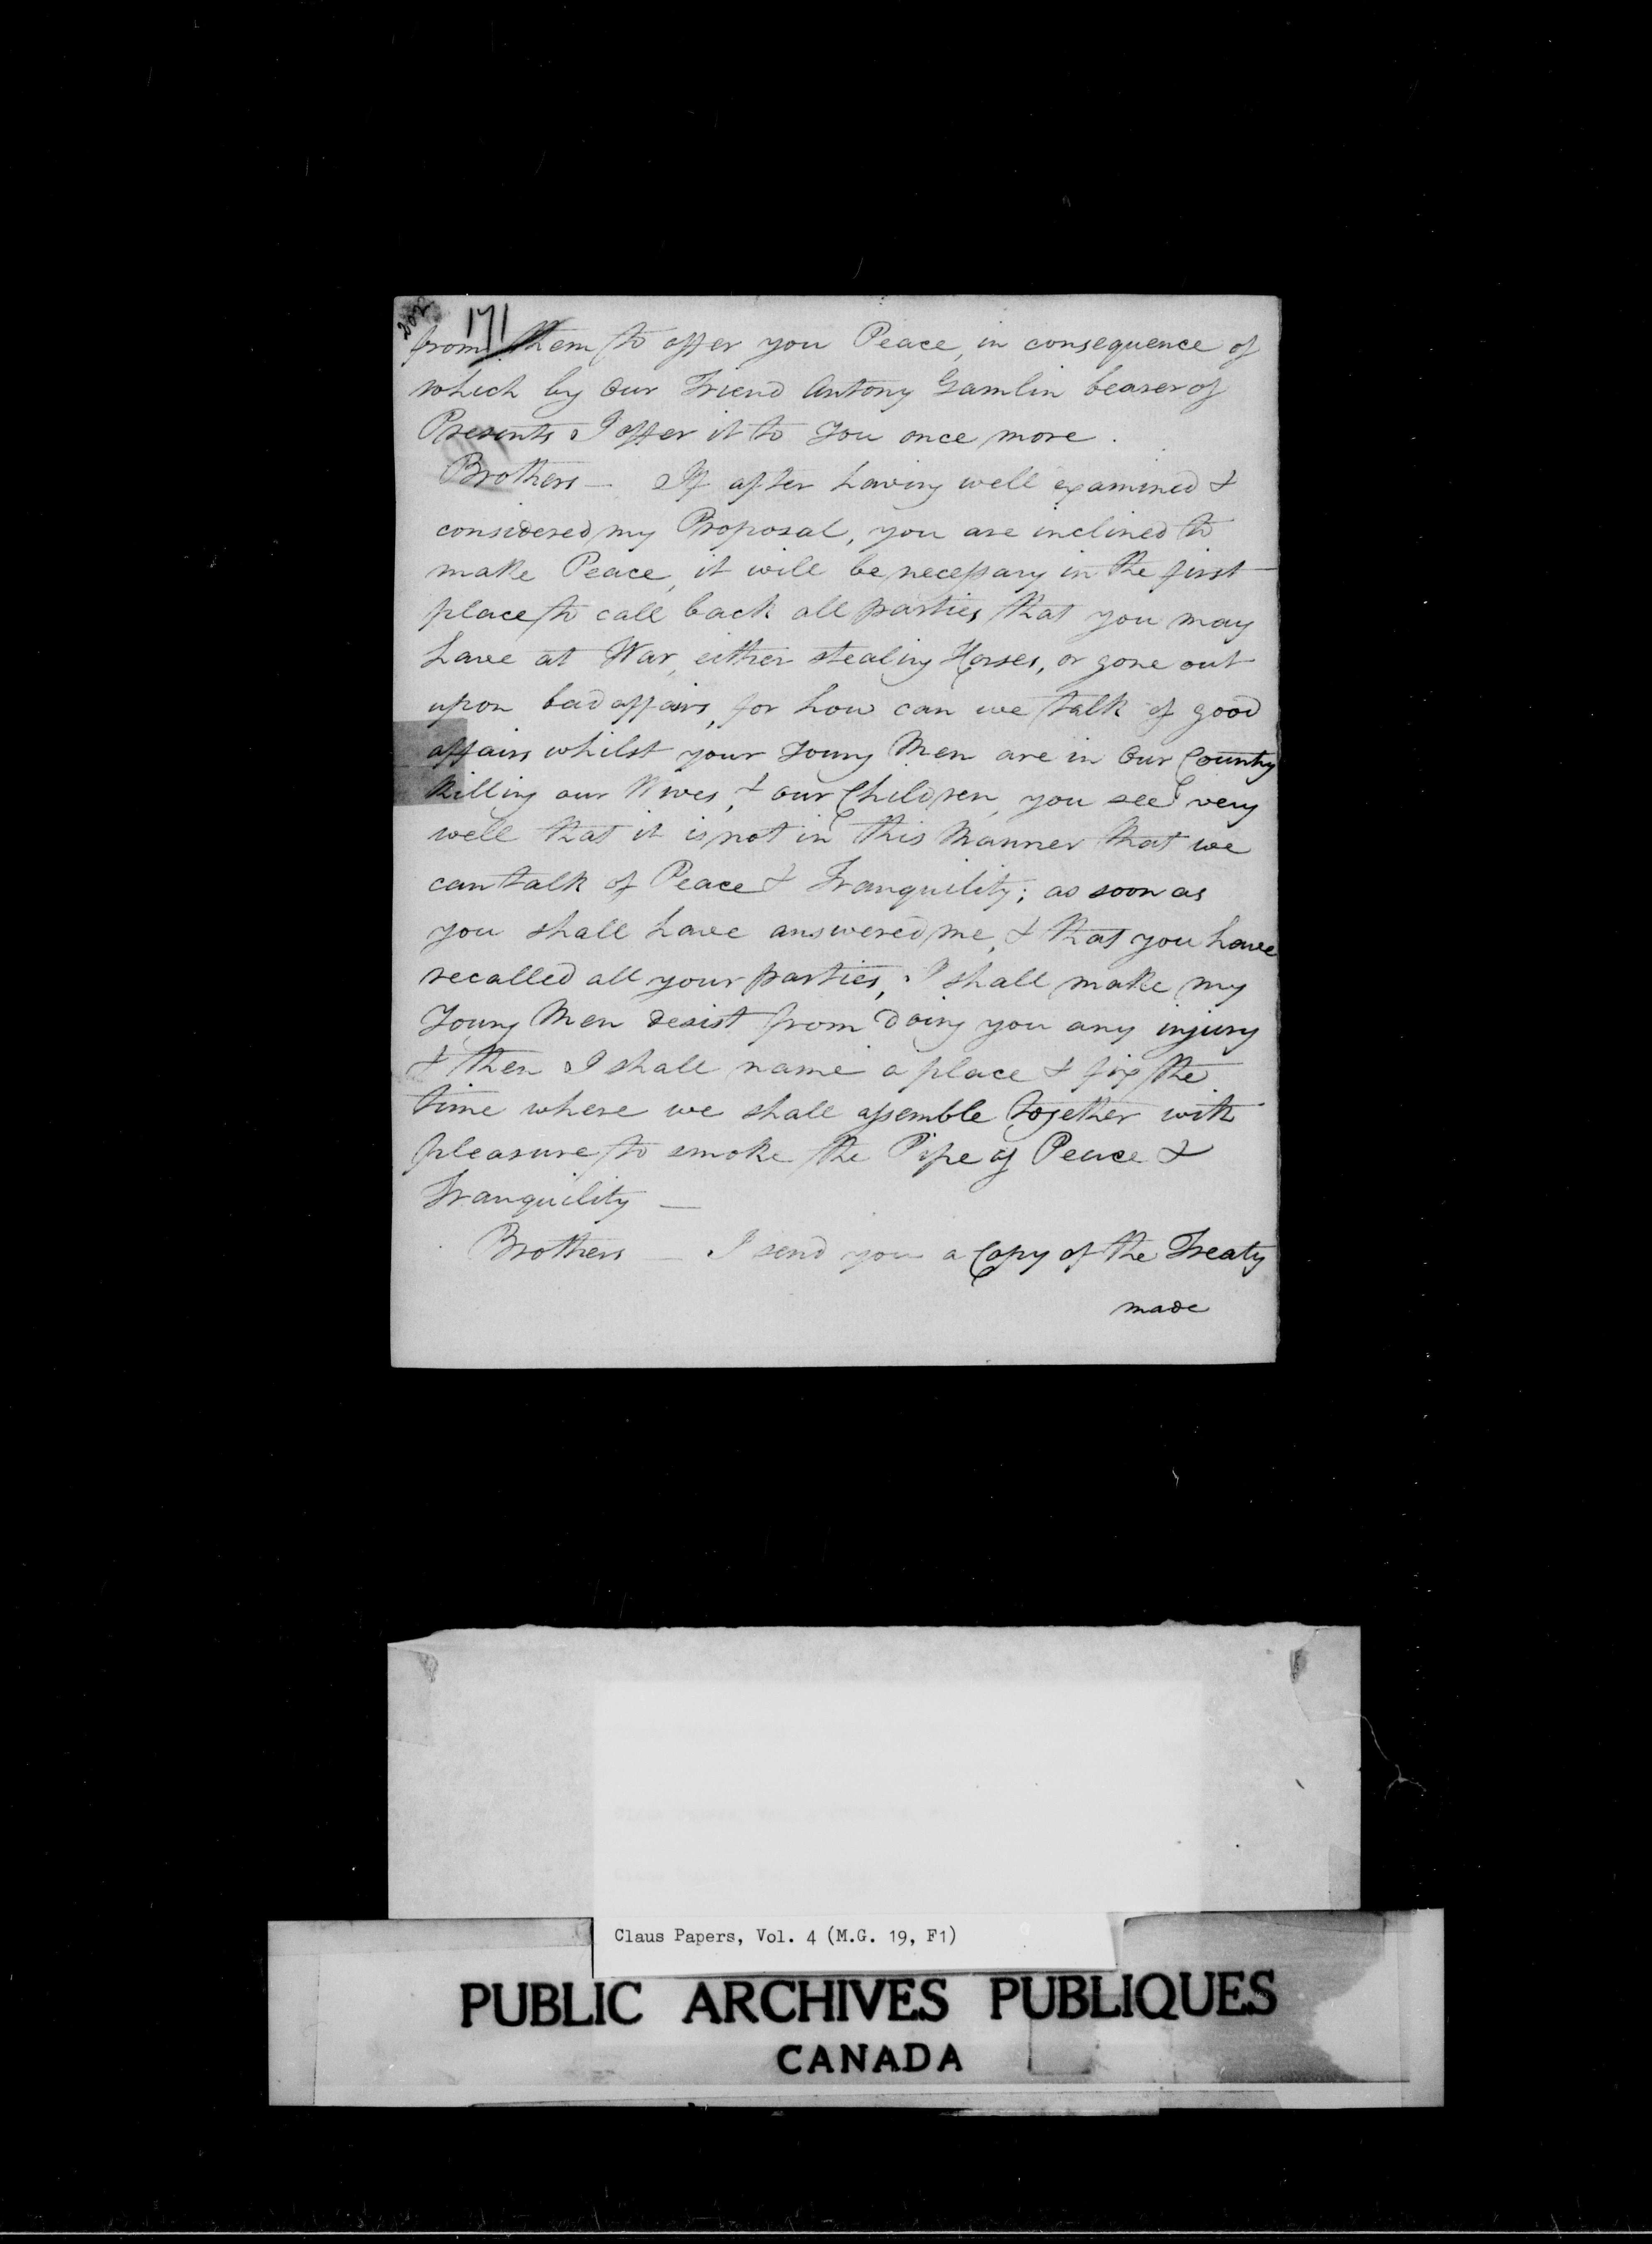 202
171
from them to offer you Peace, in consequence of
which by our Friend Antony Gamlin bearer of
Presents I offer it to you once more.
Brothers — If after having well examined &
considered my Proposal, you are inclined to
make Peace, it will be necessary in the first
place to call back all parties that you may
have at War, either stealing Horses, or gone out
upon bad affairs, for how can we talk of good
affairs whilst your Young Men are in Our Country
killing our Wives, & our Children, you see very
well that it is not in this Manner that we
can talk of Peace & Tranquility; as soon as
you shall have answered me, & that you have
recalled all your parties, I shall make my
Young Men desist from doing you any injury
& then I shall name a place & fix the
time where we shall assemble together with
pleasure to smoke the Pipe of Peace &
Tranquility —
Brothers — I send you a Copy of the Treaty
made
Claus Papers, Vol. 4 (M.G. 19, F1)
PUBLIC ARCHIVES PUBLIQUES
CANADA